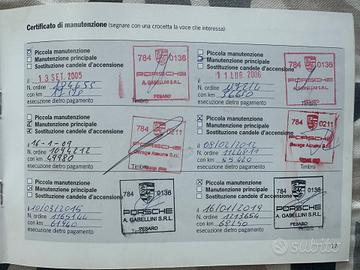 Certificato di manutenzione (segnare con una crocetta la voce che interessa)
Piccola manutenzione
Manutenzione principale
Sostituzione candele d'accensione
il 13 SET. 2005
N. ordine
con km
esecuzione dietro pagamento
784 0136
PORSCHE
A. GABELLINI S.R.L.
PESARO
Timbro
Piccola manutenzione
Manutenzione principale
Sostituzione candele d'accensione
il 11 LUG 2006
N. ordine
con km
esecuzione dietro pagamento
784 0136
PORSCHE
A. GABELLINI S.R.L.
PESARO
Timbro
Piccola manutenzione
Manutenzione principale
Sostituzione candele d'accensione
il 16-1-09
N. ordine
con km 49980
esecuzione dietro pagamento
784 0211
Timbro
Piccola manutenzione
Manutenzione principale
Sostituzione candele d'accensione
il
N. ordine
con km
esecuzione dietro pagamento
784 0211
Timbro
Piccola manutenzione
Manutenzione principale
Sostituzione candele d'accensione
il 10/03/2015
N. ordine 1165144
con km 61940
esecuzione dietro pagamento
784 0136
PORSCHE
A. GABELLINI S.R.L.
PESARO
Piccola manutenzione
Manutenzione principale
Sostituzione candele d'accensione
il 16/01/2019
N. ordine 1213654
con km 68250
esecuzione dietro pagamento
784 0136
PORSCHE
A. GABELLINI S.R.L.
PESARO
subito.it